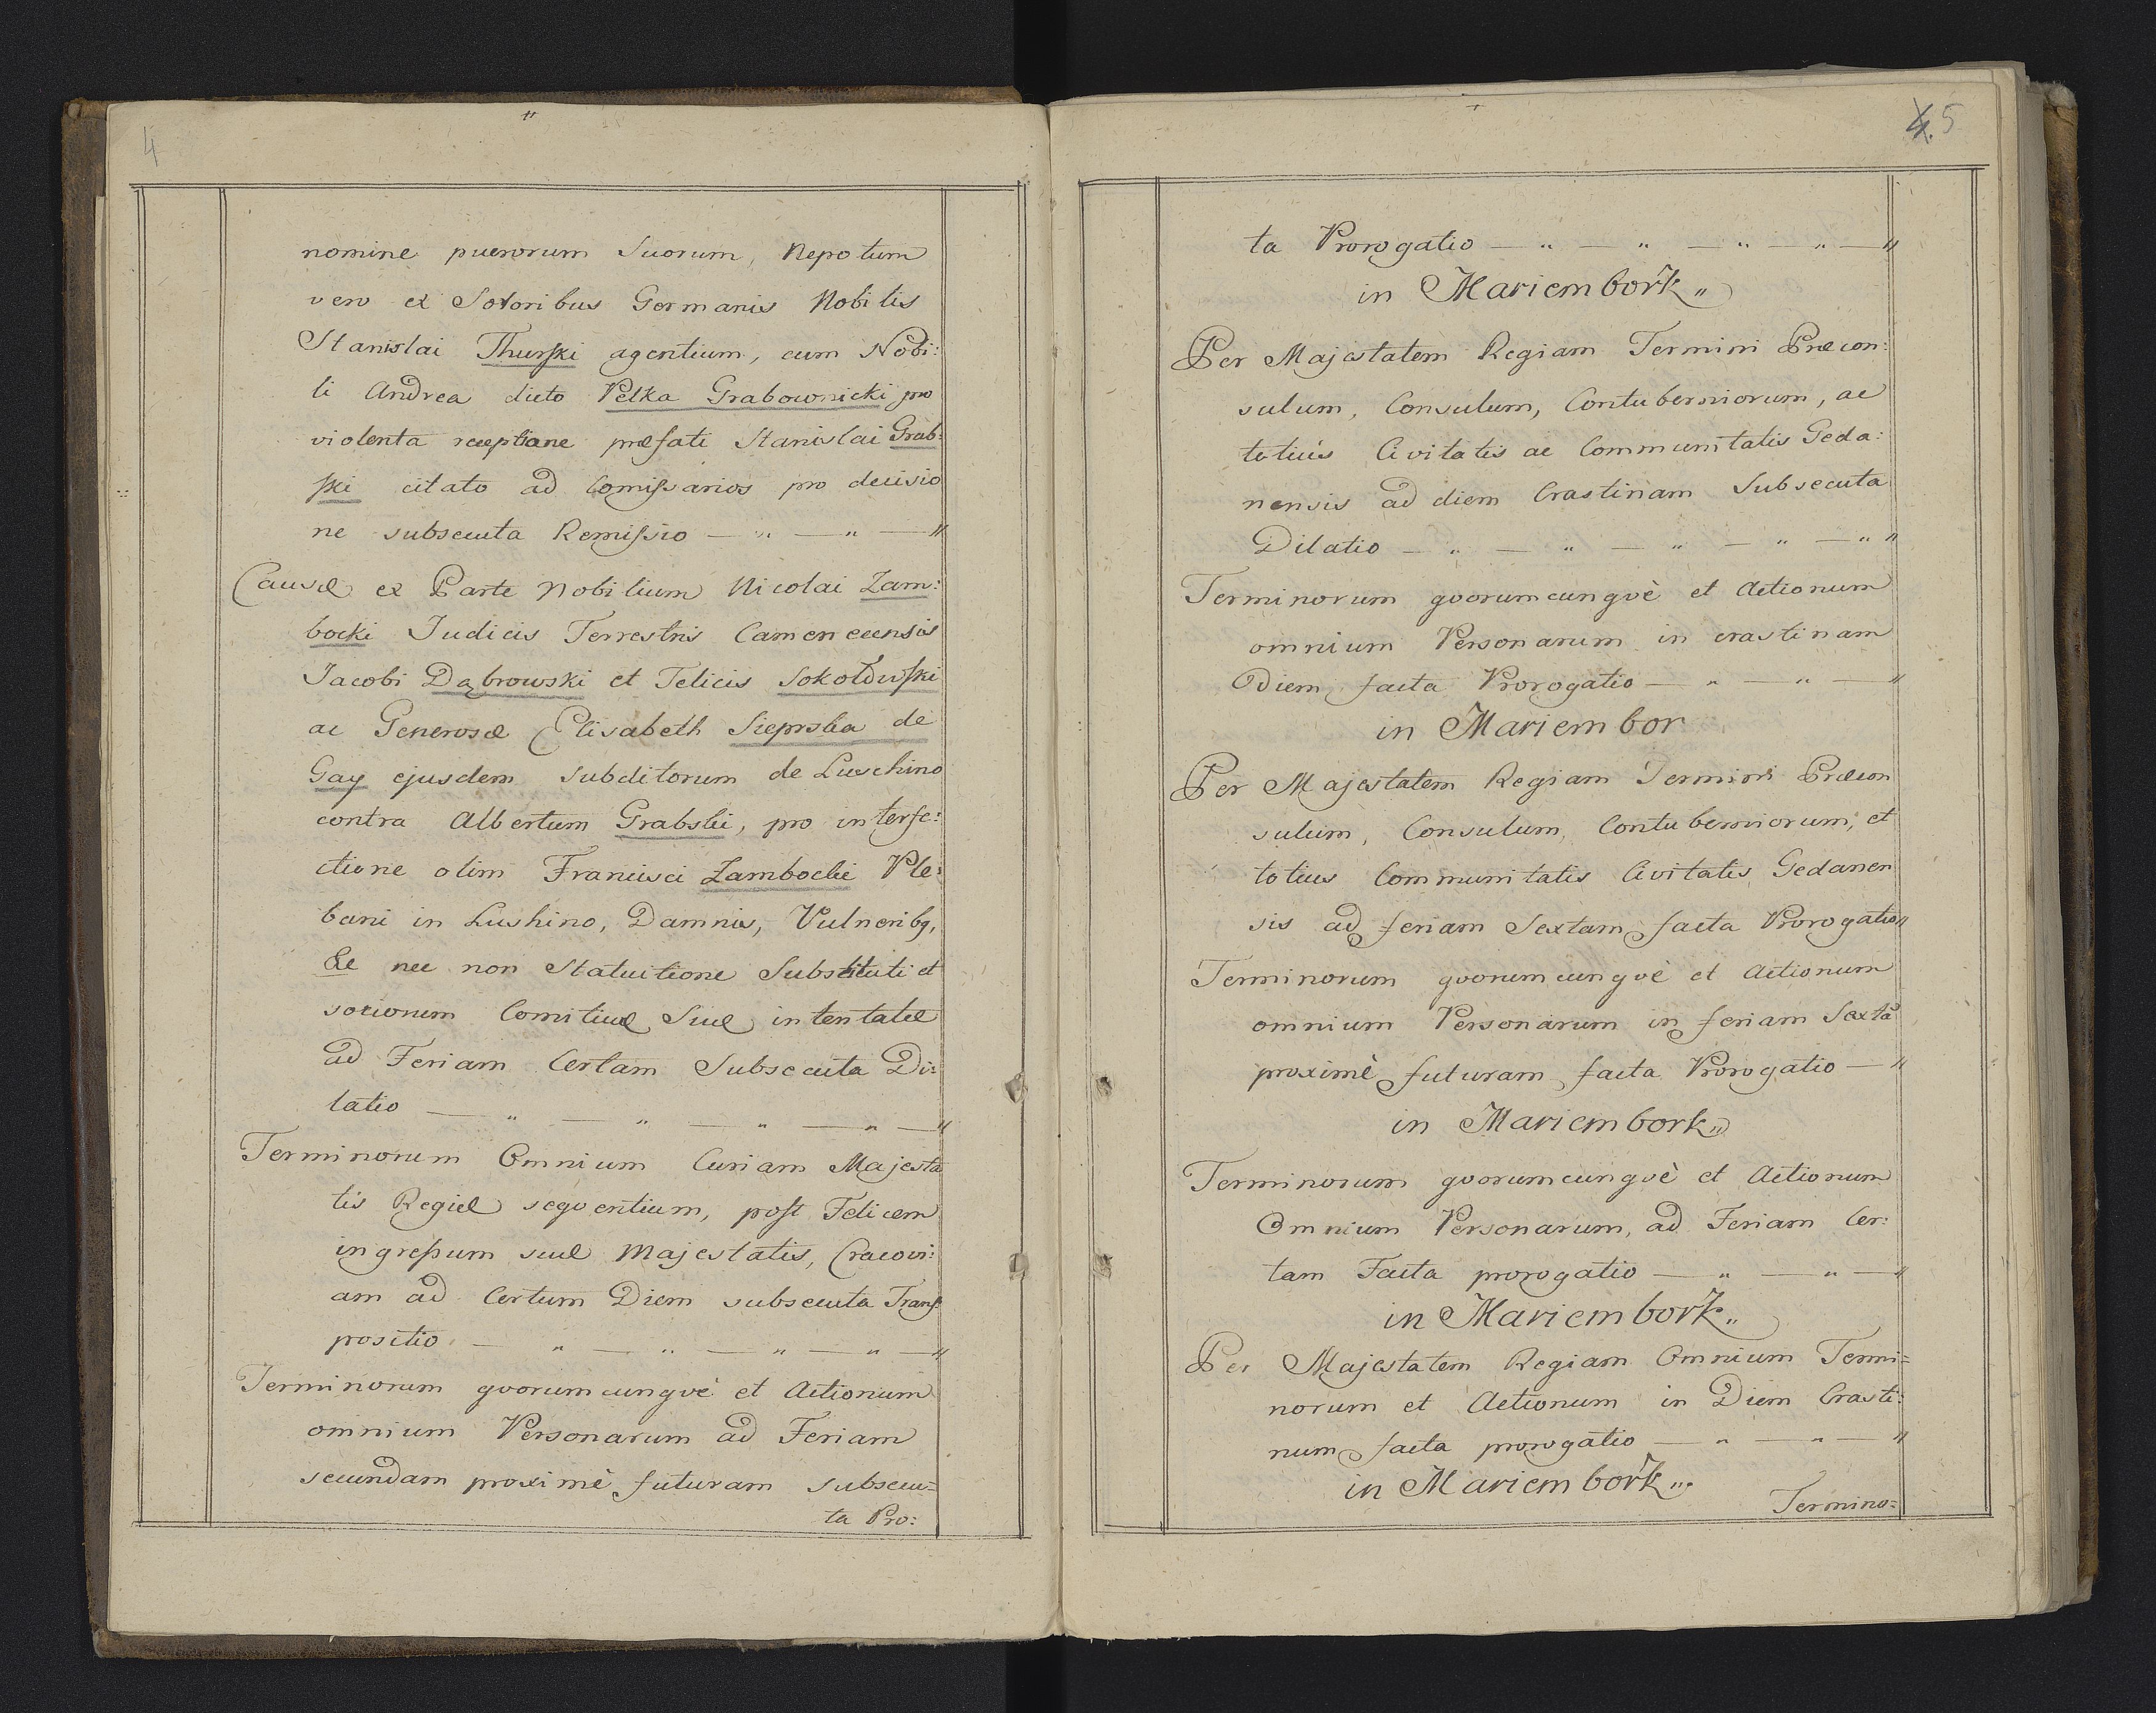 4
nomine puerorum Suorum, Nepotum
vero ex Sororibus Germanis Nobilis
Stanislai Thurski agentium, cum Nobi:
li Andrea dicto Pełka Grabownicki pro
violenta receptione præfati Stanislai Grab:
ski citato ad Comissarios pro decisio
ne subsecuta Remissio — " — " — "
Causæ ex Parte Nobilium Nicolai Zam:
bocki Judicis Terrestris Camenecensis
Jacobi Dąbrowski et Felicis Sokołowski
ac Generosæ Elisabeth Sieprska de
Gay ejusdem subditorum de Luschino
contra Albertum Grabski, pro interfe:
ctione olim Francisci Zambocki Ple:
bani in Lushino, Damnis, Vulneribq,
&c nec non Statuitione Substituti et
sociorum Comitivæ Suæ intentatæ
ad Feriam Certam Subsecuta Di:
latio — " — " — " — " — "
Terminorum Omnium Curiam Majesta
tis Regiæ seqventium, post Felicem
ingressum suæ Majestatis, Cracovi:
am ad Certum Diem subsecuta Trans:
positio — " — " — " — " — "
Terminorum qvorumcunqvè et Actionum
omnium Personarum ad Feriam
secundam proximè futuram subsecu=
ta Pro:
4. 5
ta Prorogatio — " — " — " — " — "
in Mariembork "
Per Majestatem Regiam Termini Præcon:
sulum, Consulum, Contuberniorum, ac
totiús Civitatis ac Communitatis Geda:
nensis ad diem Crastinam Subsecuta
Dilatio — " — " — " — " — " "
Terminorum qvorumcunqvè et Actionum
omnium Personarum in crastinam
Diem facta Prorogatio — " — " — "
in Mariembor
Per Majestatem Regiam Termini Præcon
sulum, Consulum, Contuberniorum, et
totius Communitatis Civitatis Gedanen
sis ad feriam Sextam facta Prorogatio "
Terminorum qvorumcunqvè et Actionum
omnium Personarum in feriam Sextã
proximè futuram facta Prorogatio — "
in Mariembork "
Terminorum qvorumcunqvè et Actionum
Omnium Personarum, ad Feriam Cer:
tam Facta prorogatio — " — " — "
in Mariembork "
Per Majestatem Regiam Omnium Termi=
norum et Actionum in Diem Crasti:
num facta prorogatio — " — " — "
in Mariembork "
Termino=